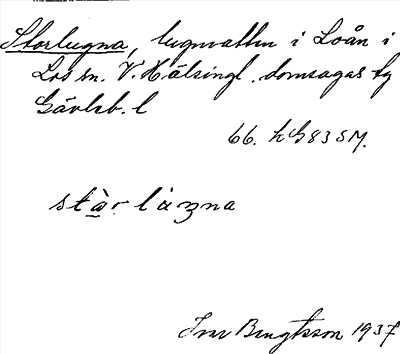 Storlugna, lugnvatten i Loån i
Los sn. V. Hälsingl. domsagas tg
Gävleb. l
66. h G 83 SM.
stàr làzna
Ivar Bengtsson 1937